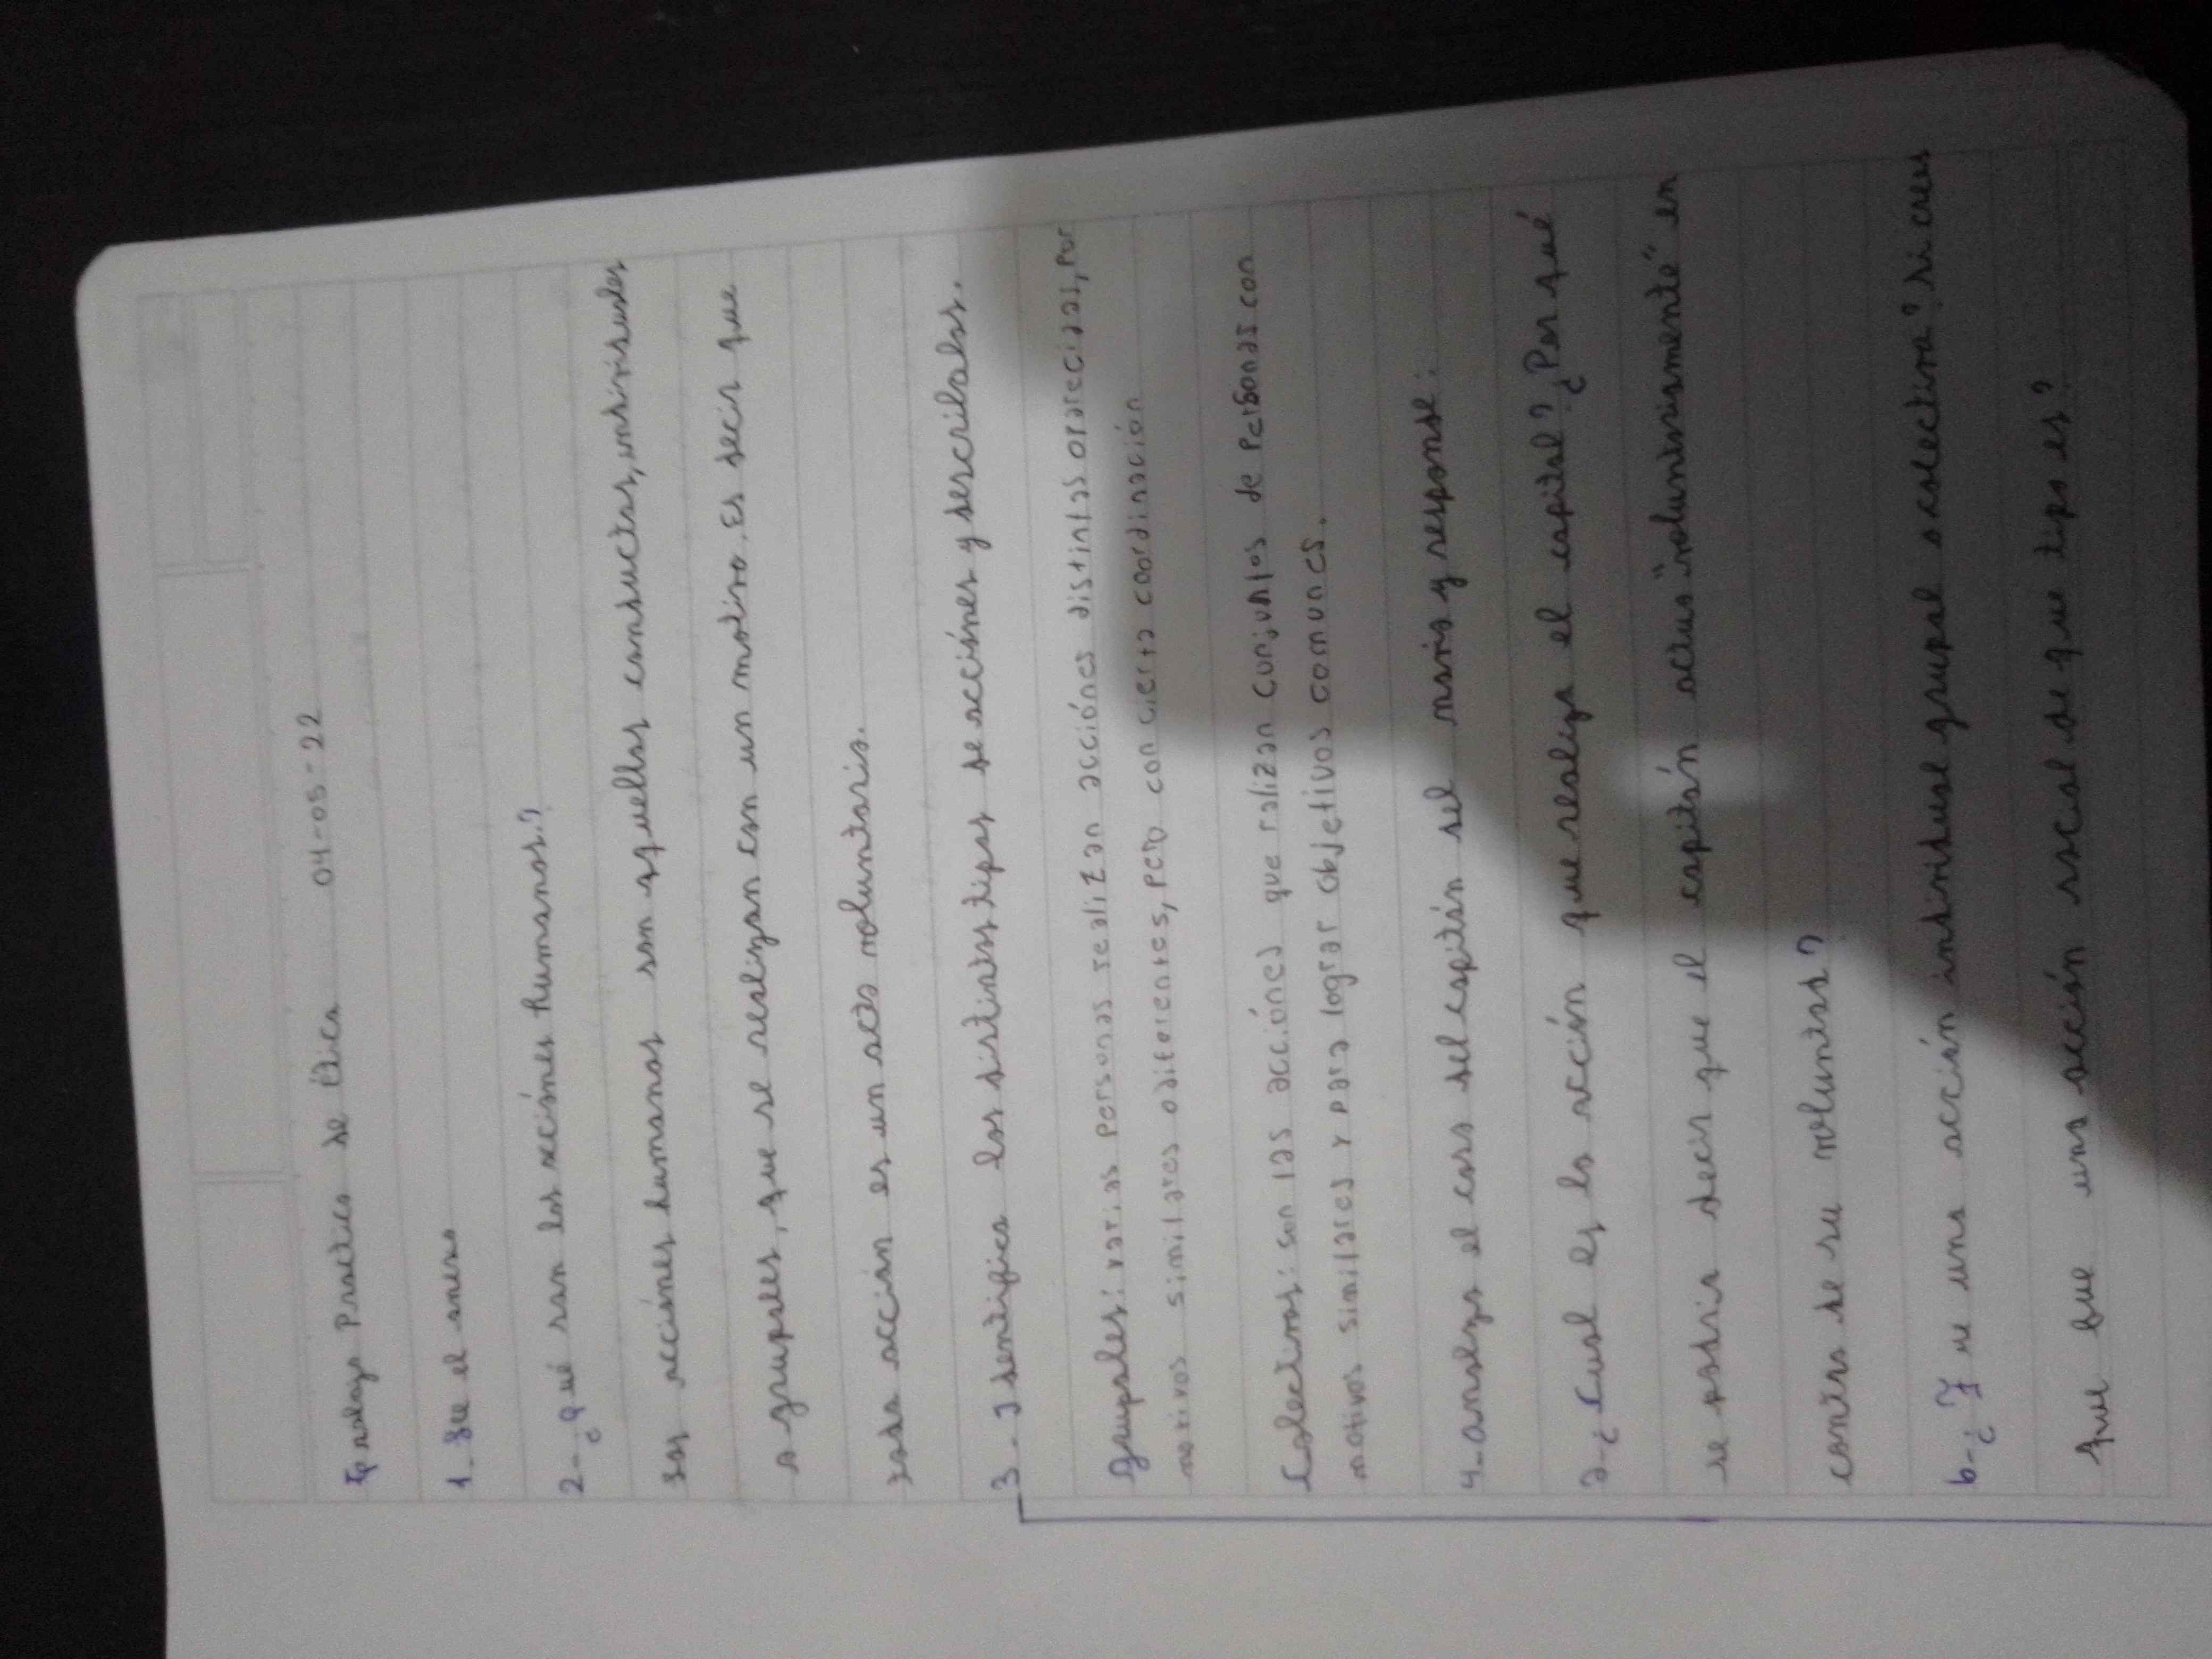 Trabajo Practico de Etica 04-05-22
1- Lee el anexo
2- ¿Qué son las acciónes humanas?
Las acciónes humanas son aquellas conductas, individuales
o grupales, que se realizan con un motivo. Es decir que
toda acción es un acto voluntario.
3- Identifica los distintos tipos de acciónes y describalas.
Grupales: varias personas realizan acciónes distintas o parecidas, por
motivos similares o diferentes, pero con cierta coordinación
Colectivas: son las acciónes que ralizan conjuntos de personas con
motivos similares y para lograr objetivos comunes.
4- analiza el caso del capitán del navio y responde:
a- ¿Cual es la acción que realiza el capital? ¿Por qué
se podria decir que el capitán actua "voluntariamente" en
contra de su voluntad?
b- ¿Fue una acción individual grupal o colectiva? Si crees
que fue una acción social de que tipo es?